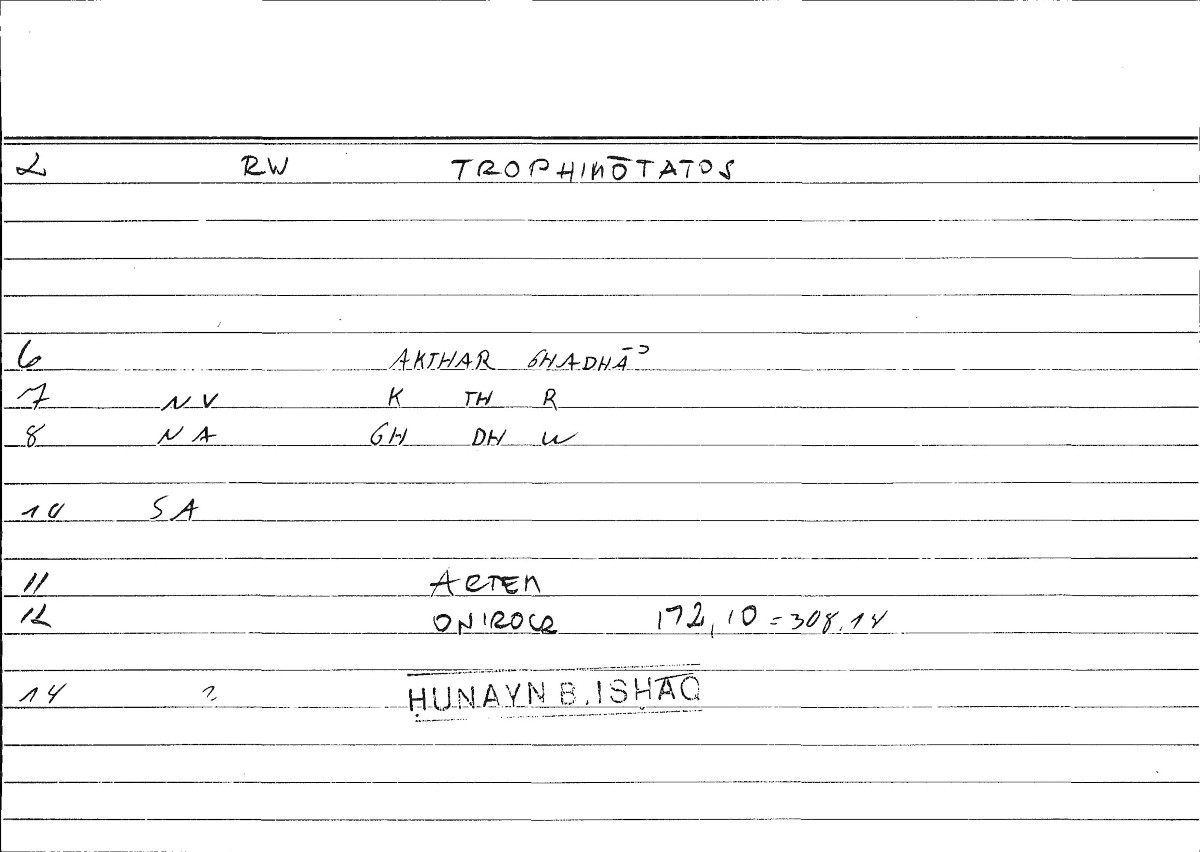 2 RW TROPHIMŌTATOS
6 AKTHAR GHADHĀʾ
7 NV K TH R
8 NA GH DH W
10 SA
11 ARTEM
12 ONIROCR 172,10 = 308.14
14 ? ḤUNAYN B. ISḤĀQ